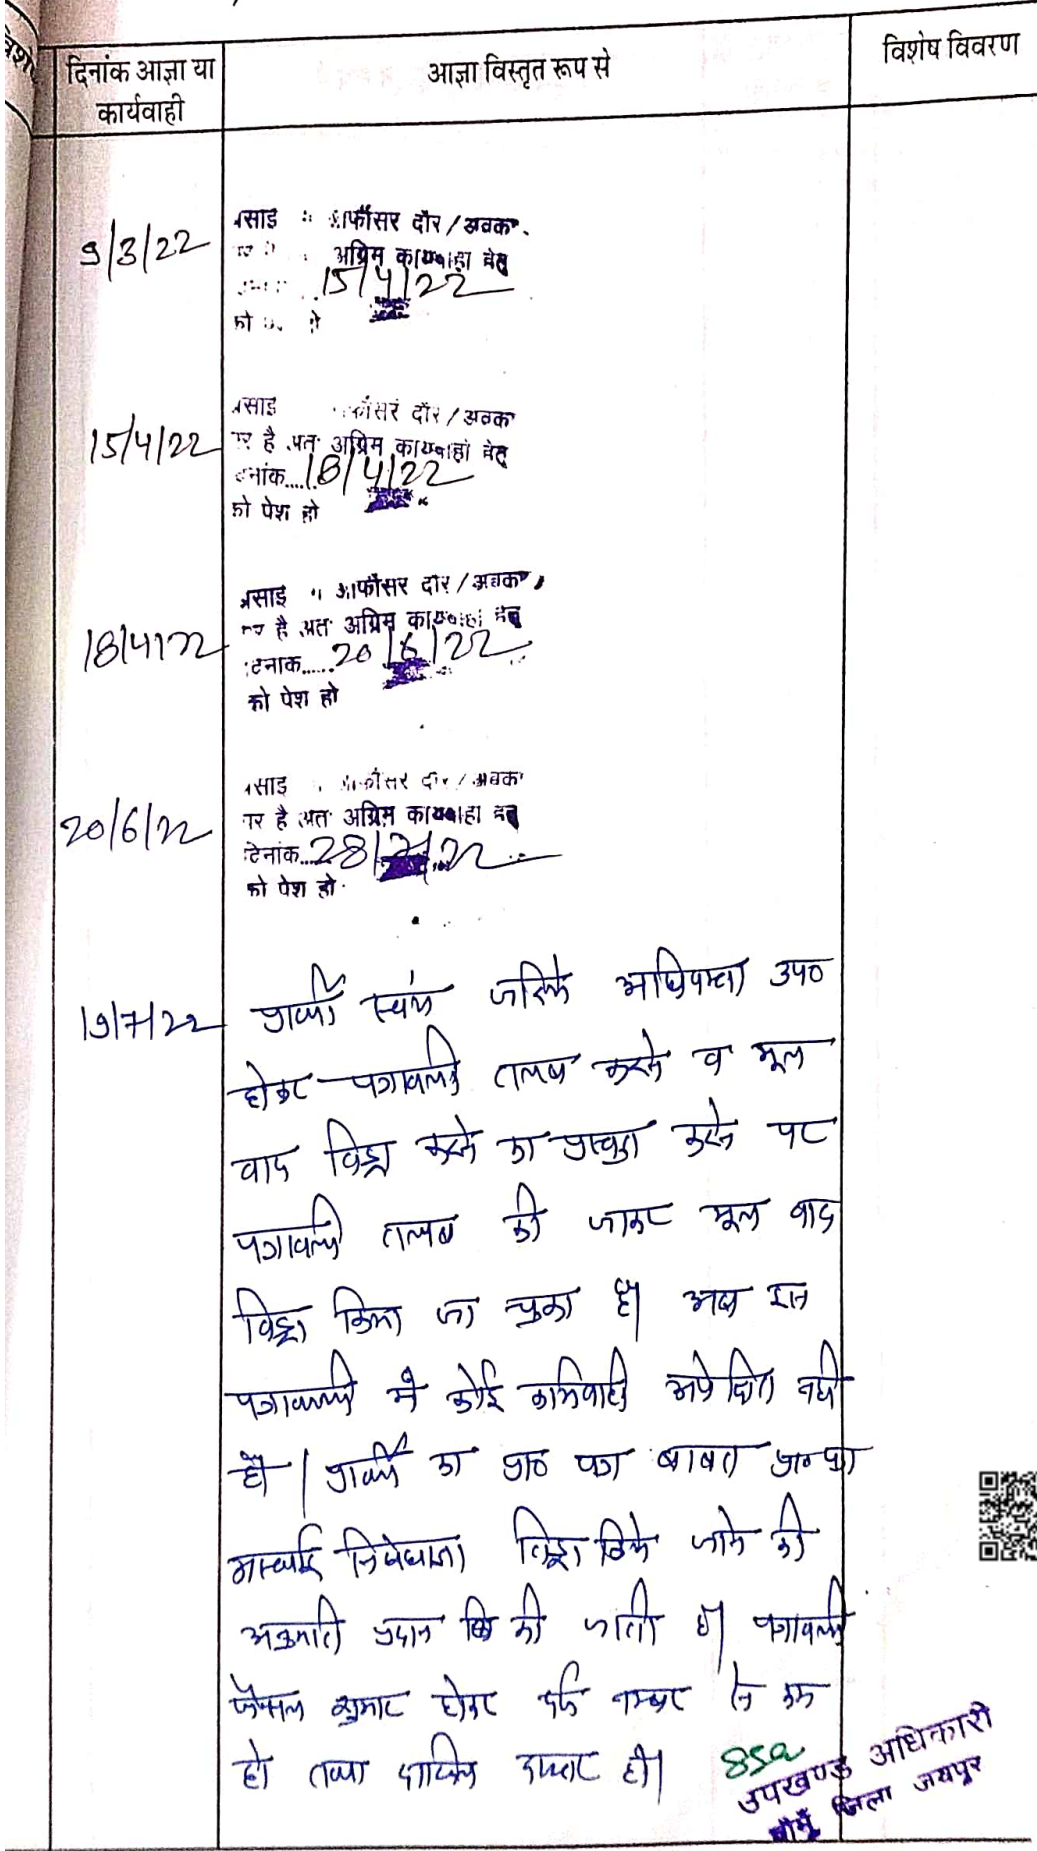 दिनांक आज्ञा या
कार्यवाही
आज्ञा विस्तृत रूप से
विशेष विवरण
9/3/22
आफीसर दौर / अवक
अग्रिम
15/4/22
को
15/4/22
दौर / अवक
है अत अग्रिम
18/4/22
को पेश हो
18/4/22
आफीसर दौर / अवक
है अत अग्रिम
20/6/22
को पेश हो
20/6/22
दौर / अवक
है अत अग्रिम
28/ 22
को पेश हो
19/7/22
प्रार्थी स्वंय जरिये अधिवक्ता उप०
होकर पत्रावली तलब करने व मूल
वाद विड्रा करने का प्रस्तुत करने पर
पत्रावली तलब की जाकर मूल वाद
विड्रा किया जा चुका है। अब इस
पत्रावली मे कोई कार्यवाही अपेक्षित नही
है। प्रार्थी का प्रा० पत्र बाबत
अस्थाई निषेधाज्ञा विड्रा किये जाने की
अनुमति प्रदान की जाती है। पत्रावली
फैसल शुमार होकर दर्ज नम्बर से कम
हो तथा दाखिल दफ्तर हो।
उपखण्ड अधिकारी
चौमूँ जिला जयपुर